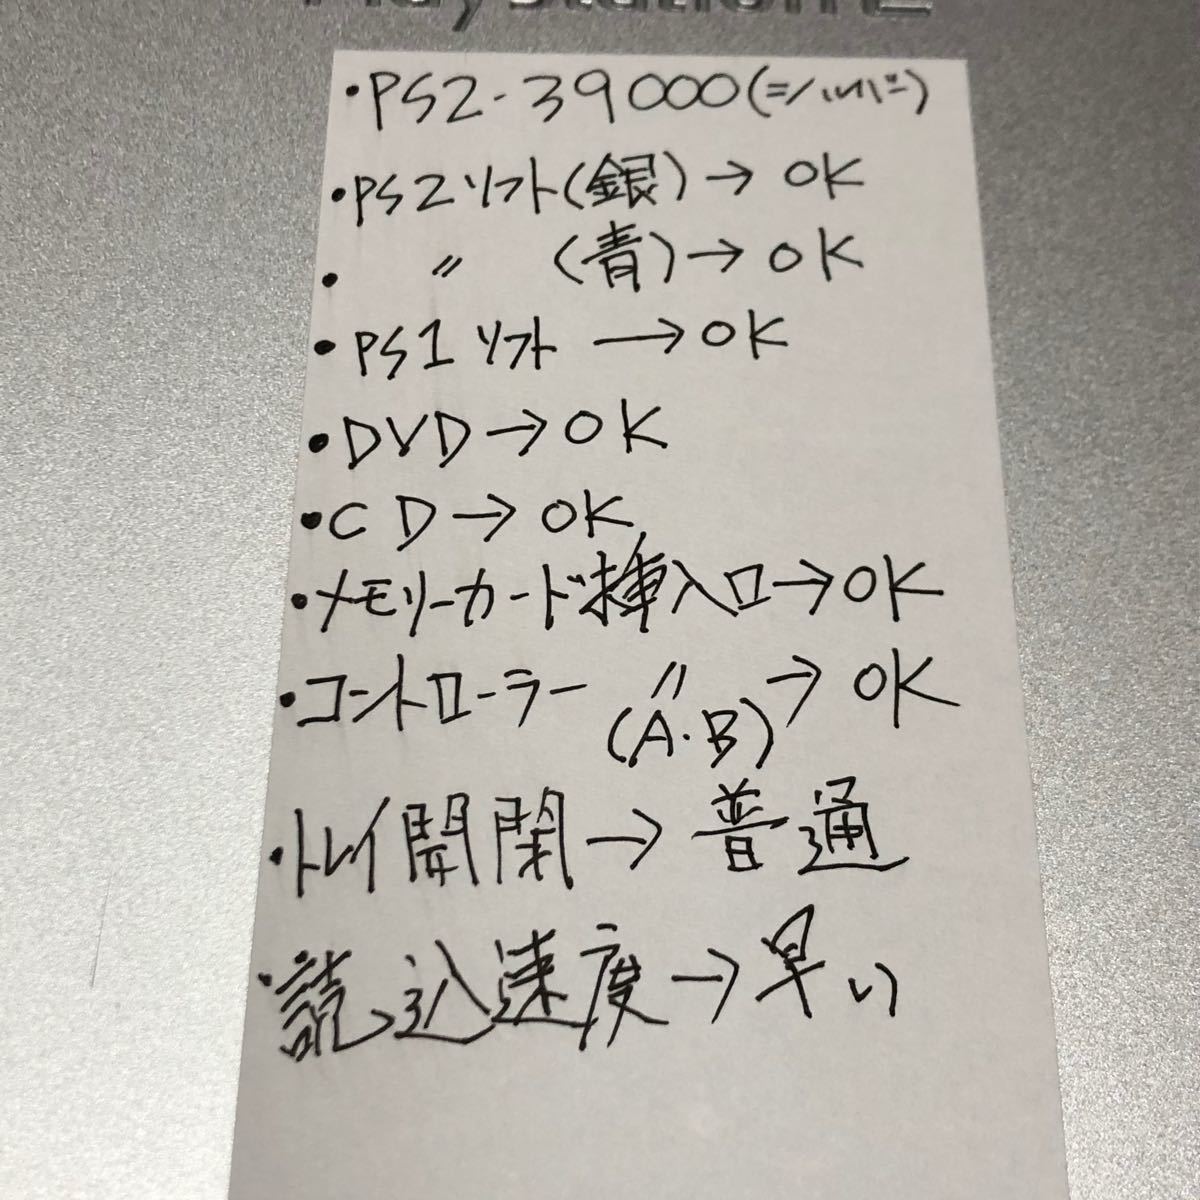 PlayStation 2
・PS2-39000(=ノいパー)
・PS2ソフト(銀)→OK
・〃(青)→OK
・PS1ソフト→OK
・DVD→OK
・CD→OK
・メモリーカード挿入口→OK
・コントローラー〃(A・B)→OK
・トレイ開閉→普通
・読込速度→早い